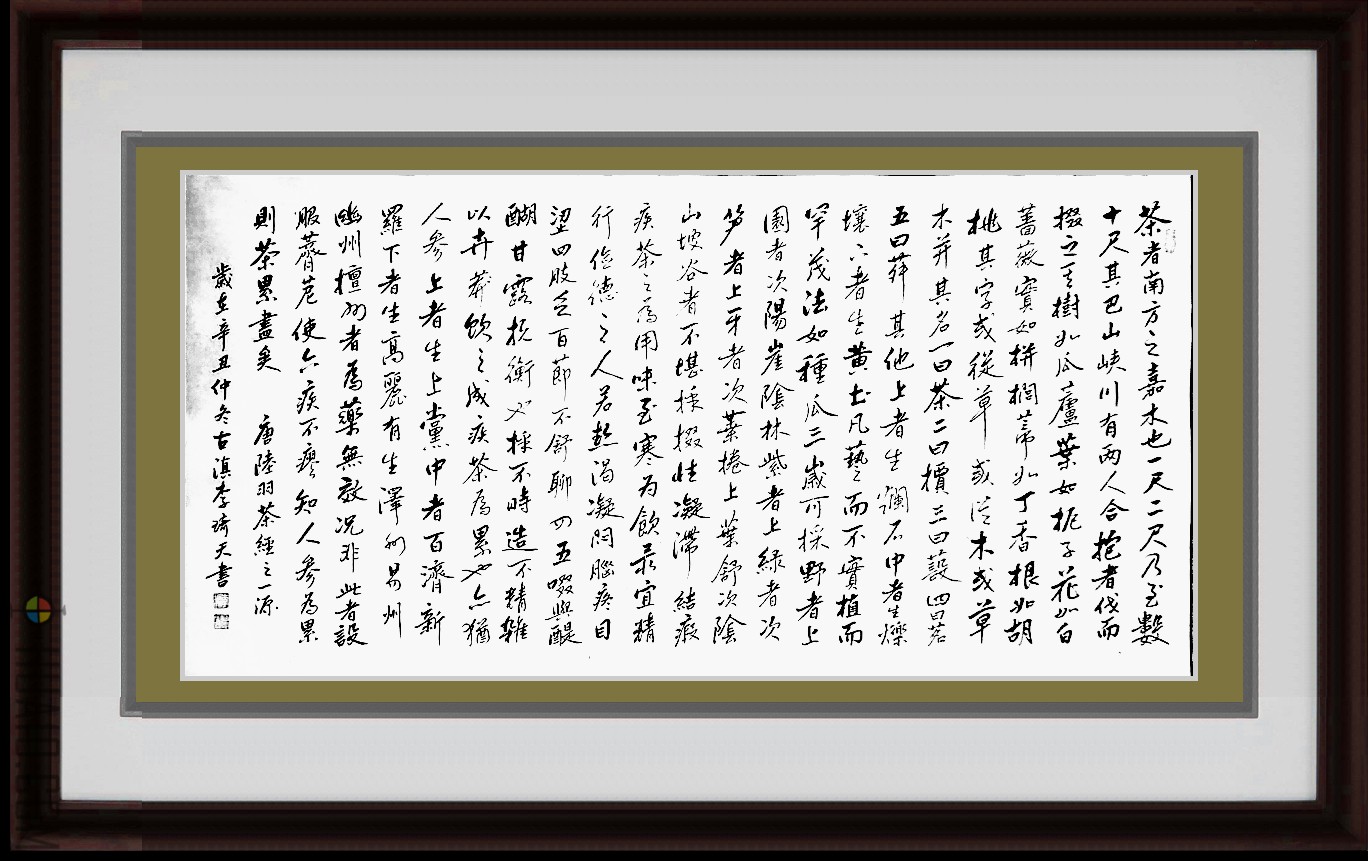 茶者南方之嘉木也一尺二尺乃至數
十尺其巴山峽川有兩人合抱者伐而
掇之其樹如瓜廬葉如梔子花如白
薔薇實如栟櫚蒂如丁香根如胡
桃其字或從草或從木或草
木并其名一曰茶二曰檟三曰蔎四曰茗
五曰荈其他上者生爛石中者生爍
壤下者生黃土凡藝而不實植而
罕茂法如種瓜三歲可採野者上
園者次陽崖陰林紫者上綠者次
笋者上牙者次葉捲上葉舒次陰
山坡谷者不堪採掇性凝滯結瘕
疾茶之為用味至寒為飲最宜精
行儉德之人若熱渴凝悶腦疼目
澀四肢乏百節不舒聊四五啜與醍
醐甘露抗衡也採不時造不精雜
以卉莽飲之成疾茶為累也亦猶
人參上者生上黨中者百濟新
羅下者生高麗有生澤州易州
幽州檀州者為藥無效況非此者設
服薺苨使六疾不瘳知人參為累
則茶累盡矣 唐陸羽茶經之一源
歲在辛丑仲冬古滇李琦天書